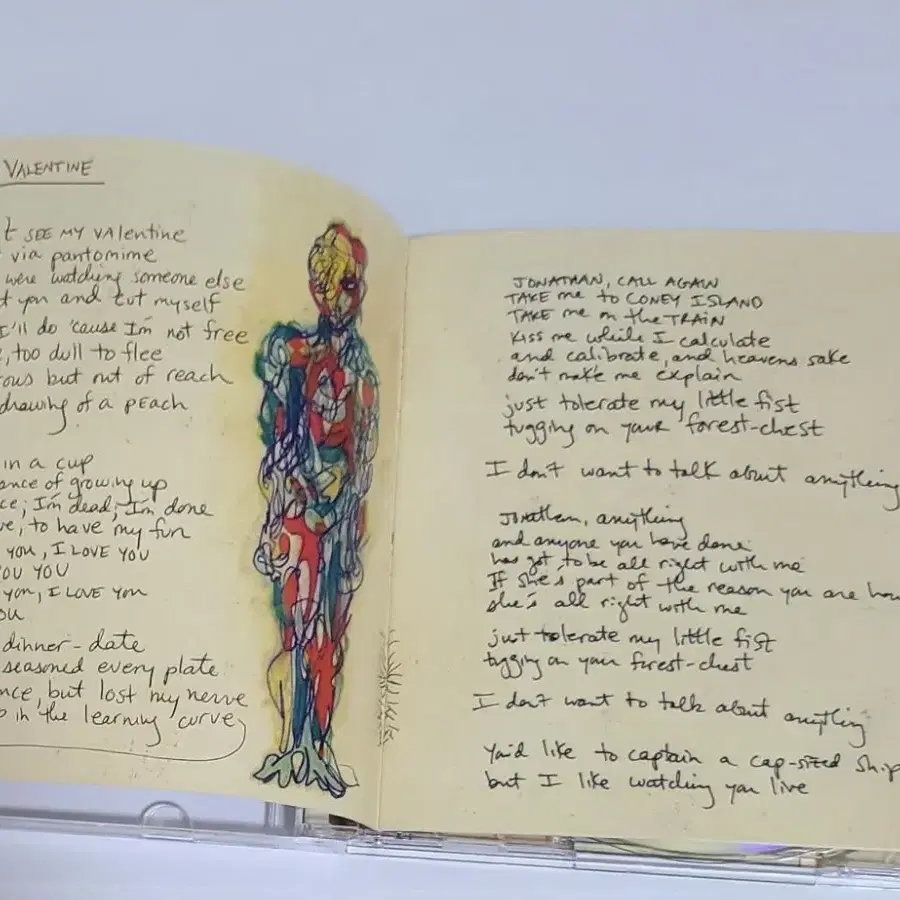 VALENTINE
t SEE MY VALENTINE
via pantomime
were watching someone else
t you and cut myself
I'll do 'cause I'm not free
, too dull to flee
ous but not of reach
drawing of a PEACH
in a cup
ance of growing up
ce; I'm dead; I'm done
ve, to have my fun
you, I LOVE YOU
OU YOU
you, I LOVE YOU
OU
dinner-date
seasoned every plate
nce, but lost my nerve
in the learning curve
JONATHAN, CALL AGAIN
TAKE me to CONEY ISLAND
TAKE me on the TRAIN
Kiss me while I calculate
and calibrate, and heavens sake
don't make me explain
just tolerate my little fist
tugging on your forest-chest
I don't want to talk about anything
Jonathan, anything
and anyone you have done
has got to be all right with me
If she's part of the reason you are how
she's all right with me
just tolerate my little fist
tugging on your forest-chest
I don't want to talk about anything
You'd like to captain a cap-sized ship
but I like watching you live